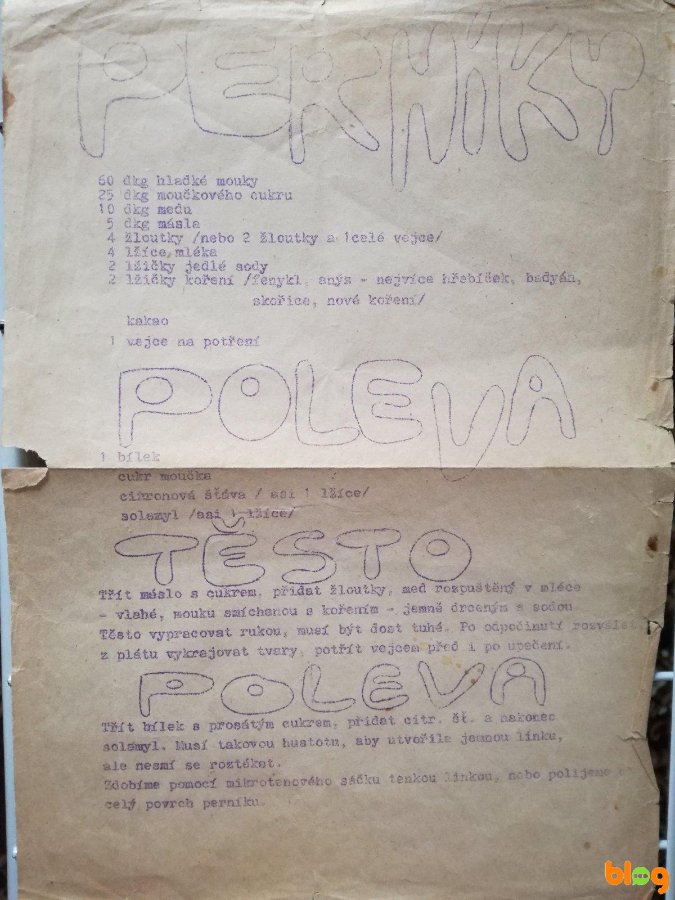 PERNÍKY
60 dkg hladké mouky
25 dkg moučkového cukru
10 dkg medu
5 dkg másla
4 žloutky /nebo 2 žloutky a 1celé vejce/
4 lžíce mléka
2 lžičky jedlé sody
2 lžičky koření /fenykl, anýs - nejvíce hřebíček, badyán,
skořice, nové koření/
kakao
1 vejce na potření
POLEVA
1 bílek
cukr moučka
citronová šťáva / asi 1 lžíce/
solamyl /asi 1 lžíce/
TĚSTO
Třít máslo s cukrem, přidat žloutky, med rozpuštěný v mléce
- vlahé, mouku smíchanou s kořením - jemně drceným a sodou
Těsto vypracovat rukou, musí být dost tuhé. Po odpočinutí rozválet
z plátu vykrajovat tvary, potřít vejcem před i po upečení.
POLEVA
Třít bílek s prosátým cukrem, přidat citr. šť. a nakonec
solamyl. Musí takovou hustotu, aby utvořila jemnou linku,
ale nesmí se roztékat.
Zdobíme pomocí mikrotenového sáčku tenkou linkou, nebo polijeme
celý povrch perníku.
blog